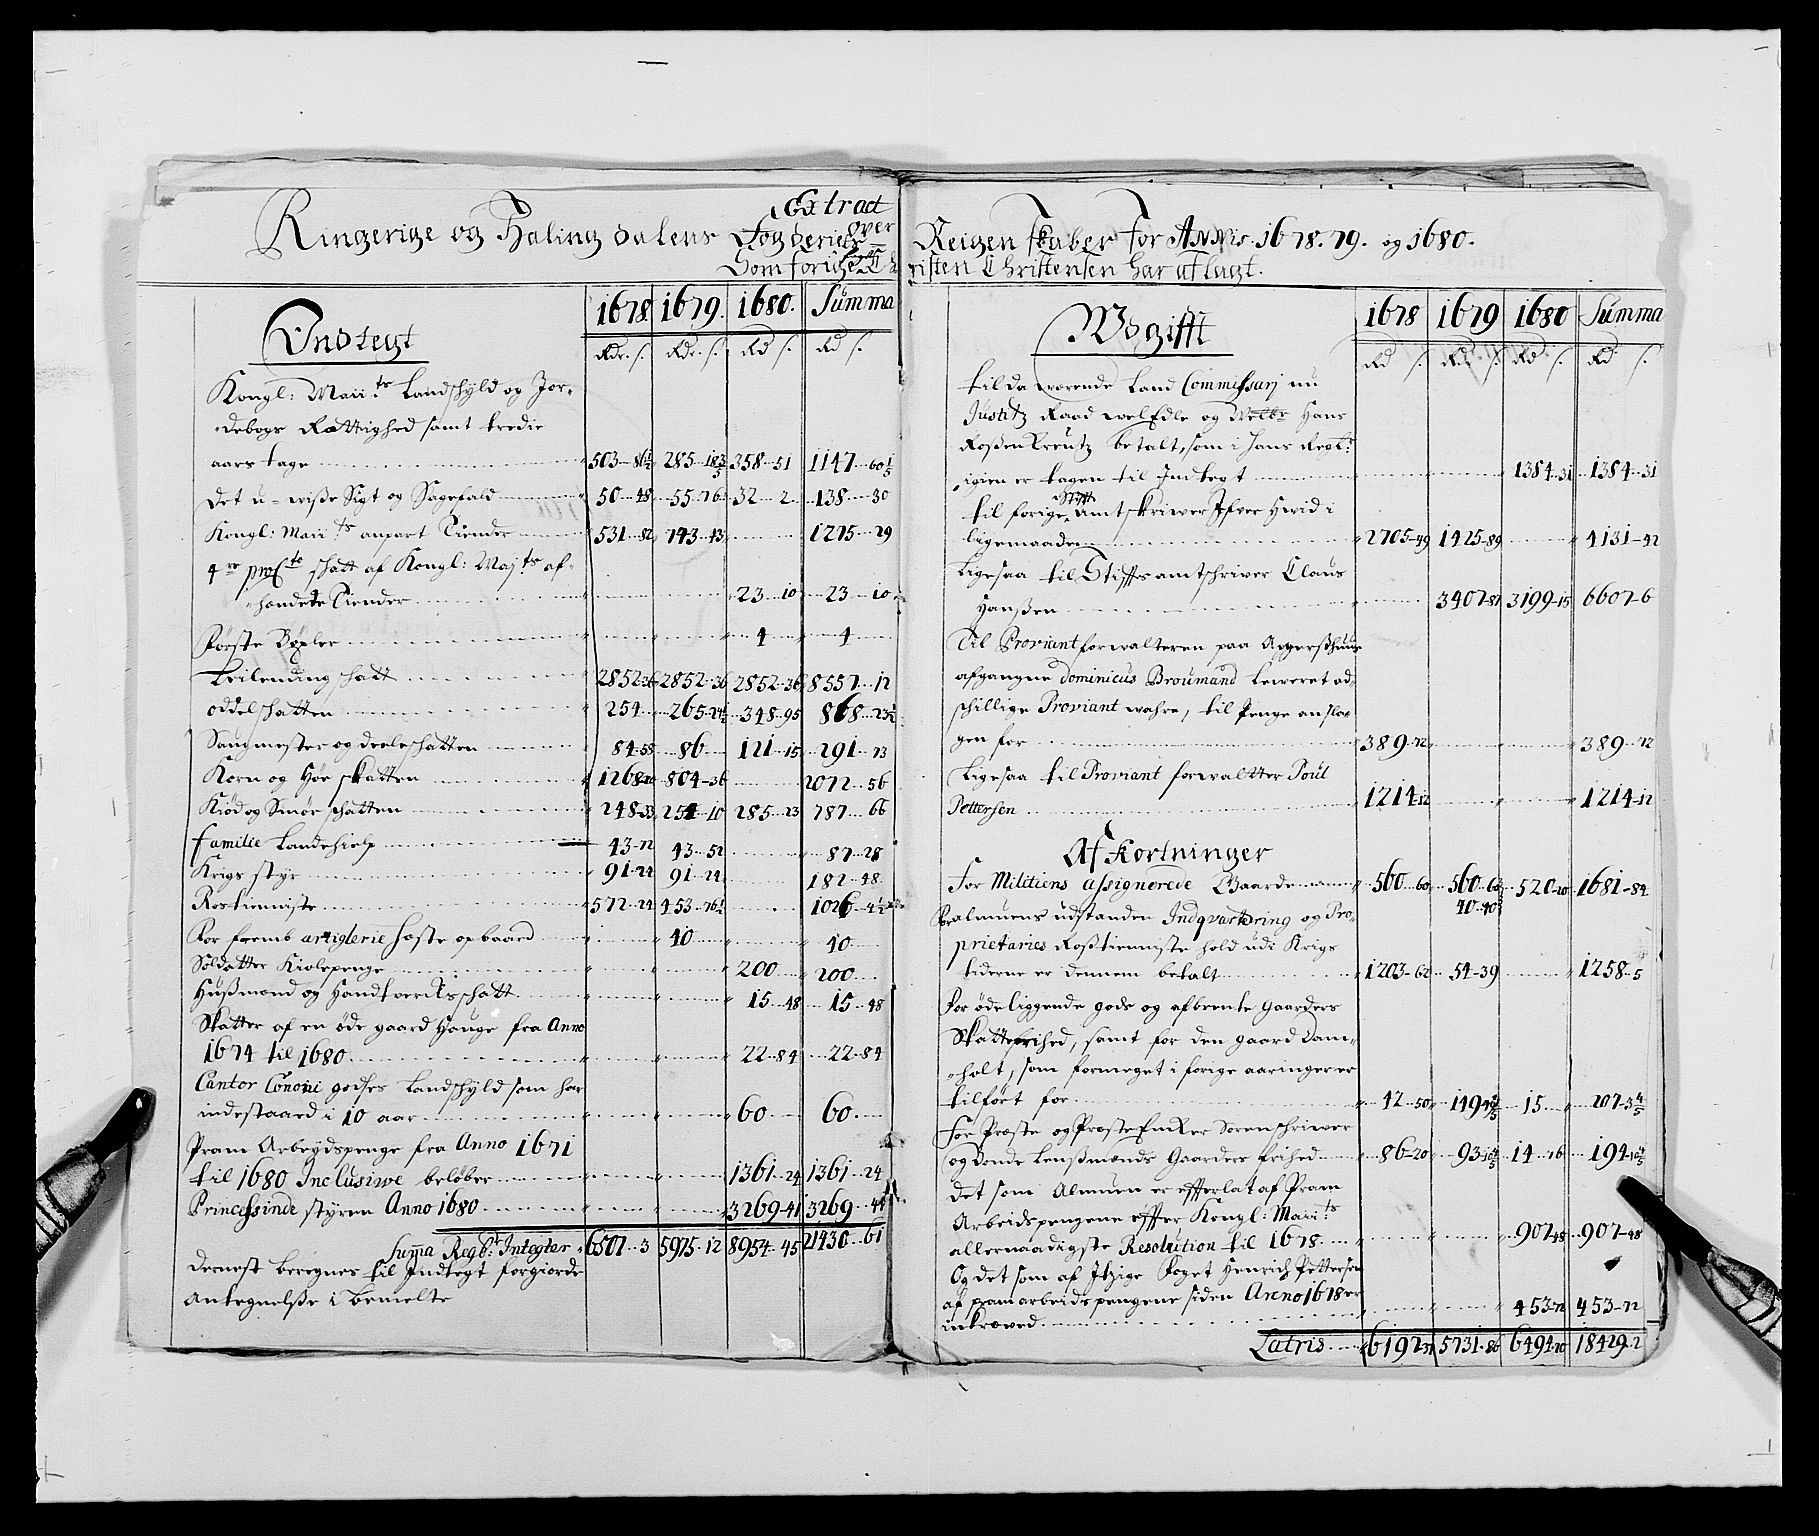 Extract
Ringerige og Halingdalens Fogderiets over Reigenskaber for Annis 1678. 79. og 1680.
Som forige Christen Christensen har aflagt.
Indtegt 1678. 1679. 1680. Summa
Rdr. s. Rdr. s. Rd s. Rd s.
Kongl: Maii.ts Landschyld og Jor-
debogs Rettighed samt tredie
aars tage 503 285 358 51 1147
Det u-wisse Sigt og Sagefald 50 48 55 76 32 2 138 30
Kongl: Maii ts anpart Tiender 531 82 743 43 1275 29
4re pro Cto schatt af Kongl: Maj ts af-
hændete Tiender 23 10 23 10
Første Bøxler 4 4
Leilending schatt 2852 36 2852 36 2852 36 8557 12
oddelschatten 254 265 348 95 868
Saugmester og deeleschatten 84 58 86 121 15 291 73
Korn og Høe skatten 1268 20 804 36 2072 56
Kiød og Smør schatten 248 33 254 10 285 23 787 66
familie Landehielp 43 72 43 52 87 28
Krigs styr 91 24 91 24 182 48
Rostienniste 572 24 453 1026
For fremb artiglerie hæste opbaard 40 40
Soldatter Kiolepenge 200 200
Hussmænd og Handtverchsschatt 15 48 15 48
Skatter af en øde gaard Hauge fra Anno
1674 til 1680 22 84 22 84
Cantor Cononi godses Landschyld som har
indestaaed i 10 aar 60 60
Pram Arbeydspenge fra Anno 1671
til 1680 Inclusiwe beløber 1361 24 1361 24
Princessinde styren Anno 1680 3269 41 3269 41
Suma Regb: Integter 6507 3 5975 12 8954 45 21430 61
Dernest beregnes til Indtegt forgiorde
Antegnelsse i bemelte
Wdgifft 1678 1679 1680 Summa
Rd s. Rd s. Rd s. Rd s.
til da wærende Land Commissarj nu
Justitz Raad welEdle og Hans
Rossen Kreutz betalt, som i hans Regt:
igien er tagen til Indtegt 1384 31 1384 31
til forige Stift Amtskriwer Ifver Hwid i
ligemaaden 2705 49 1425 89 4131 42
Ligesaa til Stifftsamtschriver Claus
Hanssen 3407 87 3199 15 6607 6
Til Proviantforwalteren paa Aggersshuus
afgangne Dominicus Broumand lewered ad-
schillige Proviant wahre, til Penge anslo-
gen for 389 72 389 72
Ligesaa til Proviant forwaltter Poul
Pettersen 1214 12 1214 12
Afkortninger
For Militiens assignerede Gaarde 560 60 560 60 520 20 1681 84
40 40
For almuens udstanden Indqvartering og Pro-
prietaries Rosstienniste hold udi Krigs
tiderne er dennem betalt 1203 62 54 39 1258 5
For øde liggende gods og afbrente Gaarders
Skattefrihed, samt for den gaard Dam-
holt, som formeget i forige aaringer er
tilført for 42 50 149 15 207
for Præste og PræsteEncker Sorenschriwer
og Bonde Lenssmænds Gaarders frihed 86 20 93 14 76 194
Det som Almuen er efferlat af Pram
Arbeidspengene effter Kongl: Maii:ts
allernaadigste Resolution til 1678 907 48 907 48
Og det som af Itzige Foget Henrich Pettersen
af pramarbeidspengene siden Anno 1678 er
inkræved 453 72 453 72
Latris 6192 5731 86 6494 18429 2